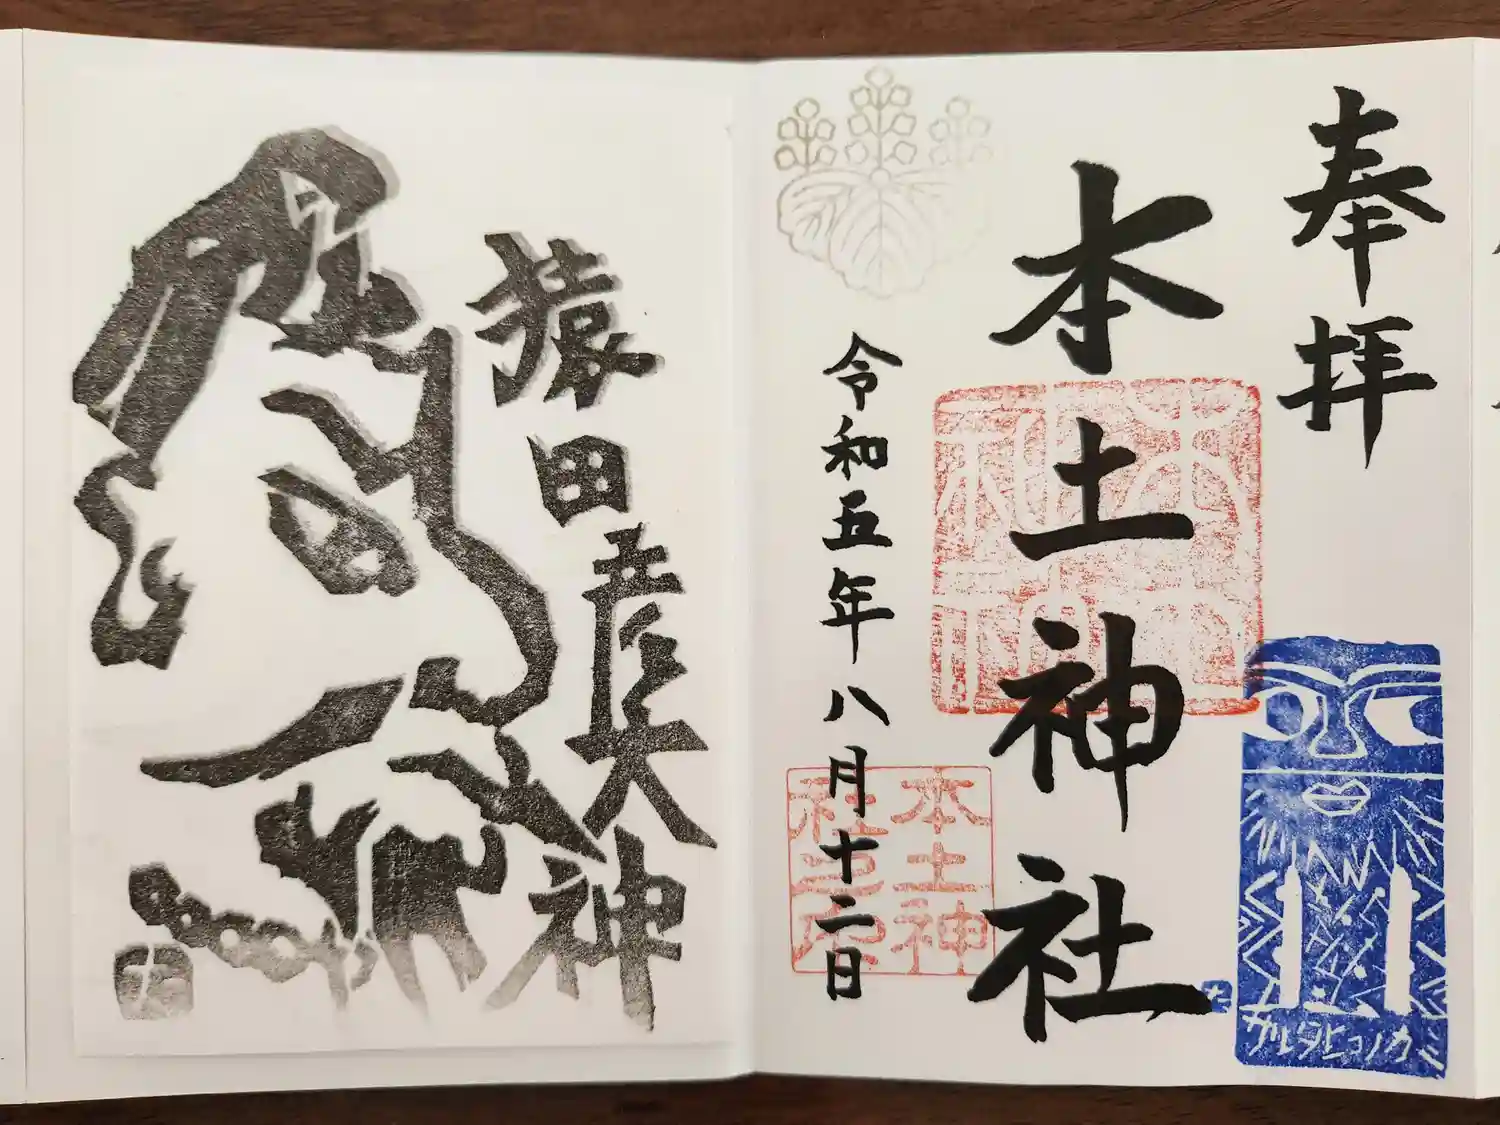 奉拝
本土神社
令和五年八月十二日
本土神
社之印
サルタヒコノカミ
猿田彦大神